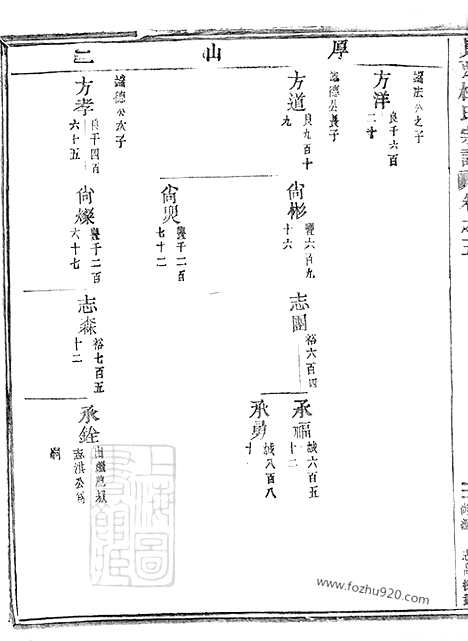 厚山二
謐法公之子
方洋
良千六百
二十
謐德公長子
方道
良九百十
九
尙彬
豐六百九
十六
志團
裕六百四
承福
誠六百五
十二
承勇
誠八百八
十
尙㷼
豐千二百
七十二
謐德公次子
方孝
良千四百
六十五
尙燦
豐千二百
六十七
志森
裕七百五
十二
承銓
出繼
志淇公爲
嗣
上海圖
www.fozhu920.com